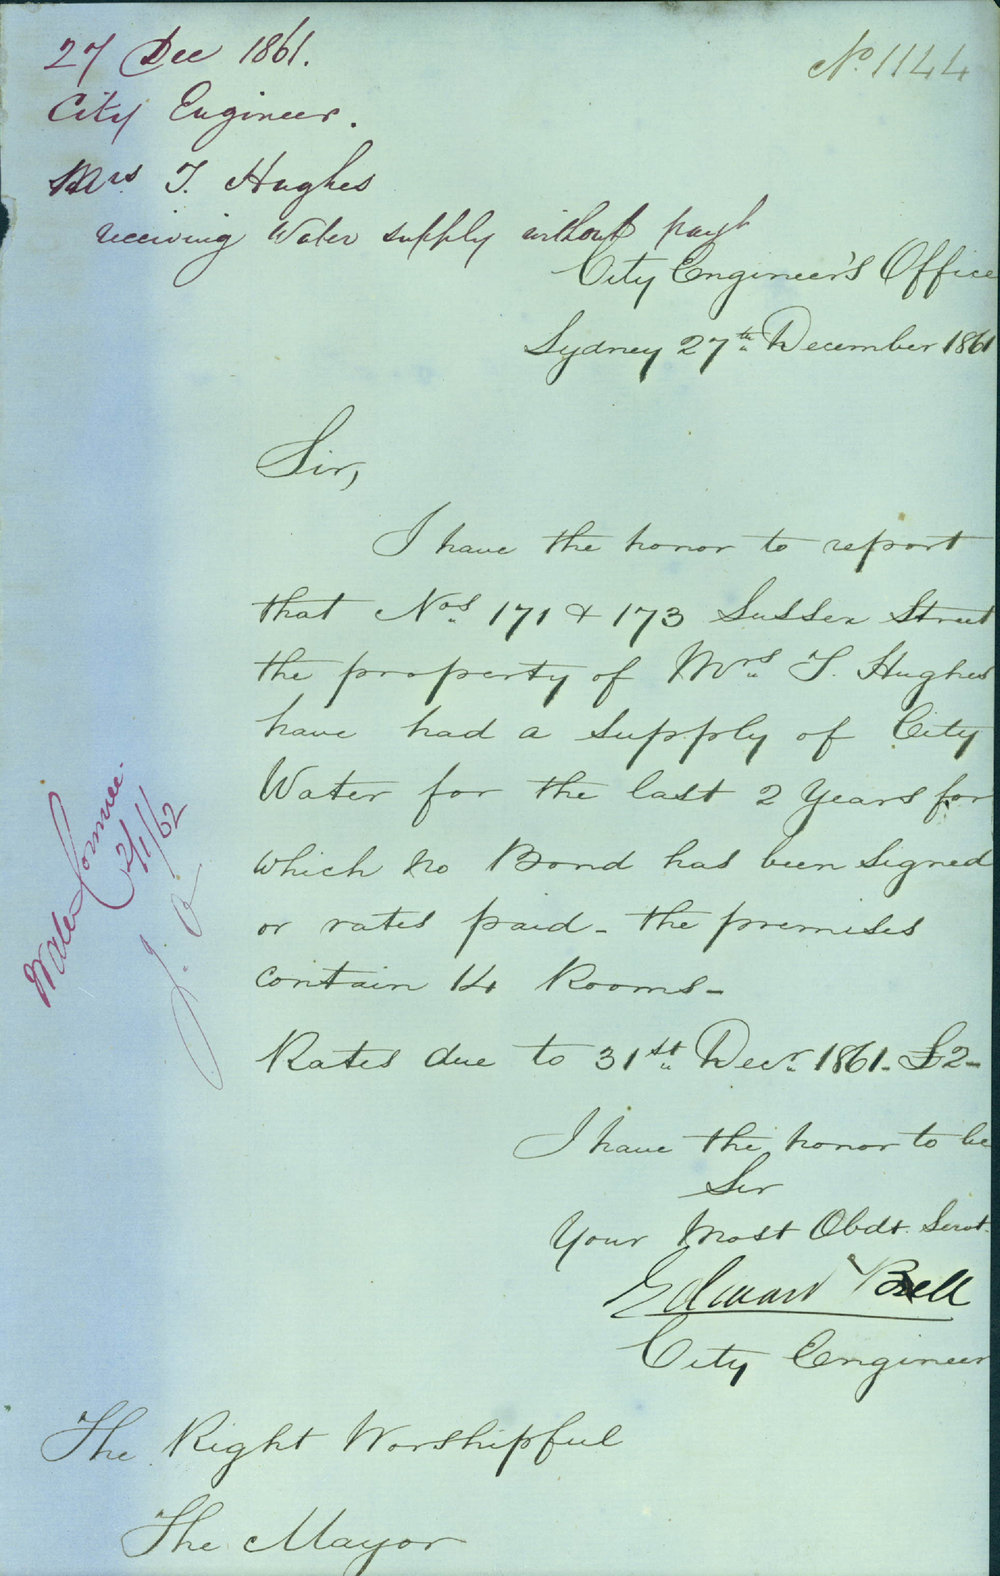 27 Dec 1861.
No. 1144
City Engineer.
Mrs T. Hughes
receiving Water supply without payt
City Engineer's Office
Sydney 27th December 1861
Sir,
I have the honor to report
that Nos. 171 & 173 Sussex Street
the property of Mrs T. Hughes
have had a supply of City
Water for the last 2 Years for
which no Bond has been signed
or rates paid - the premises
contain 14 Rooms -
Rates due to 31st Decr. 1861 - £2 -
I have the honor to be
Sir
Your Most Obdt. Servt.
Edward Bell
City Engineer
The Right Worshipful
The Mayor
Water Commee.
2/1/62